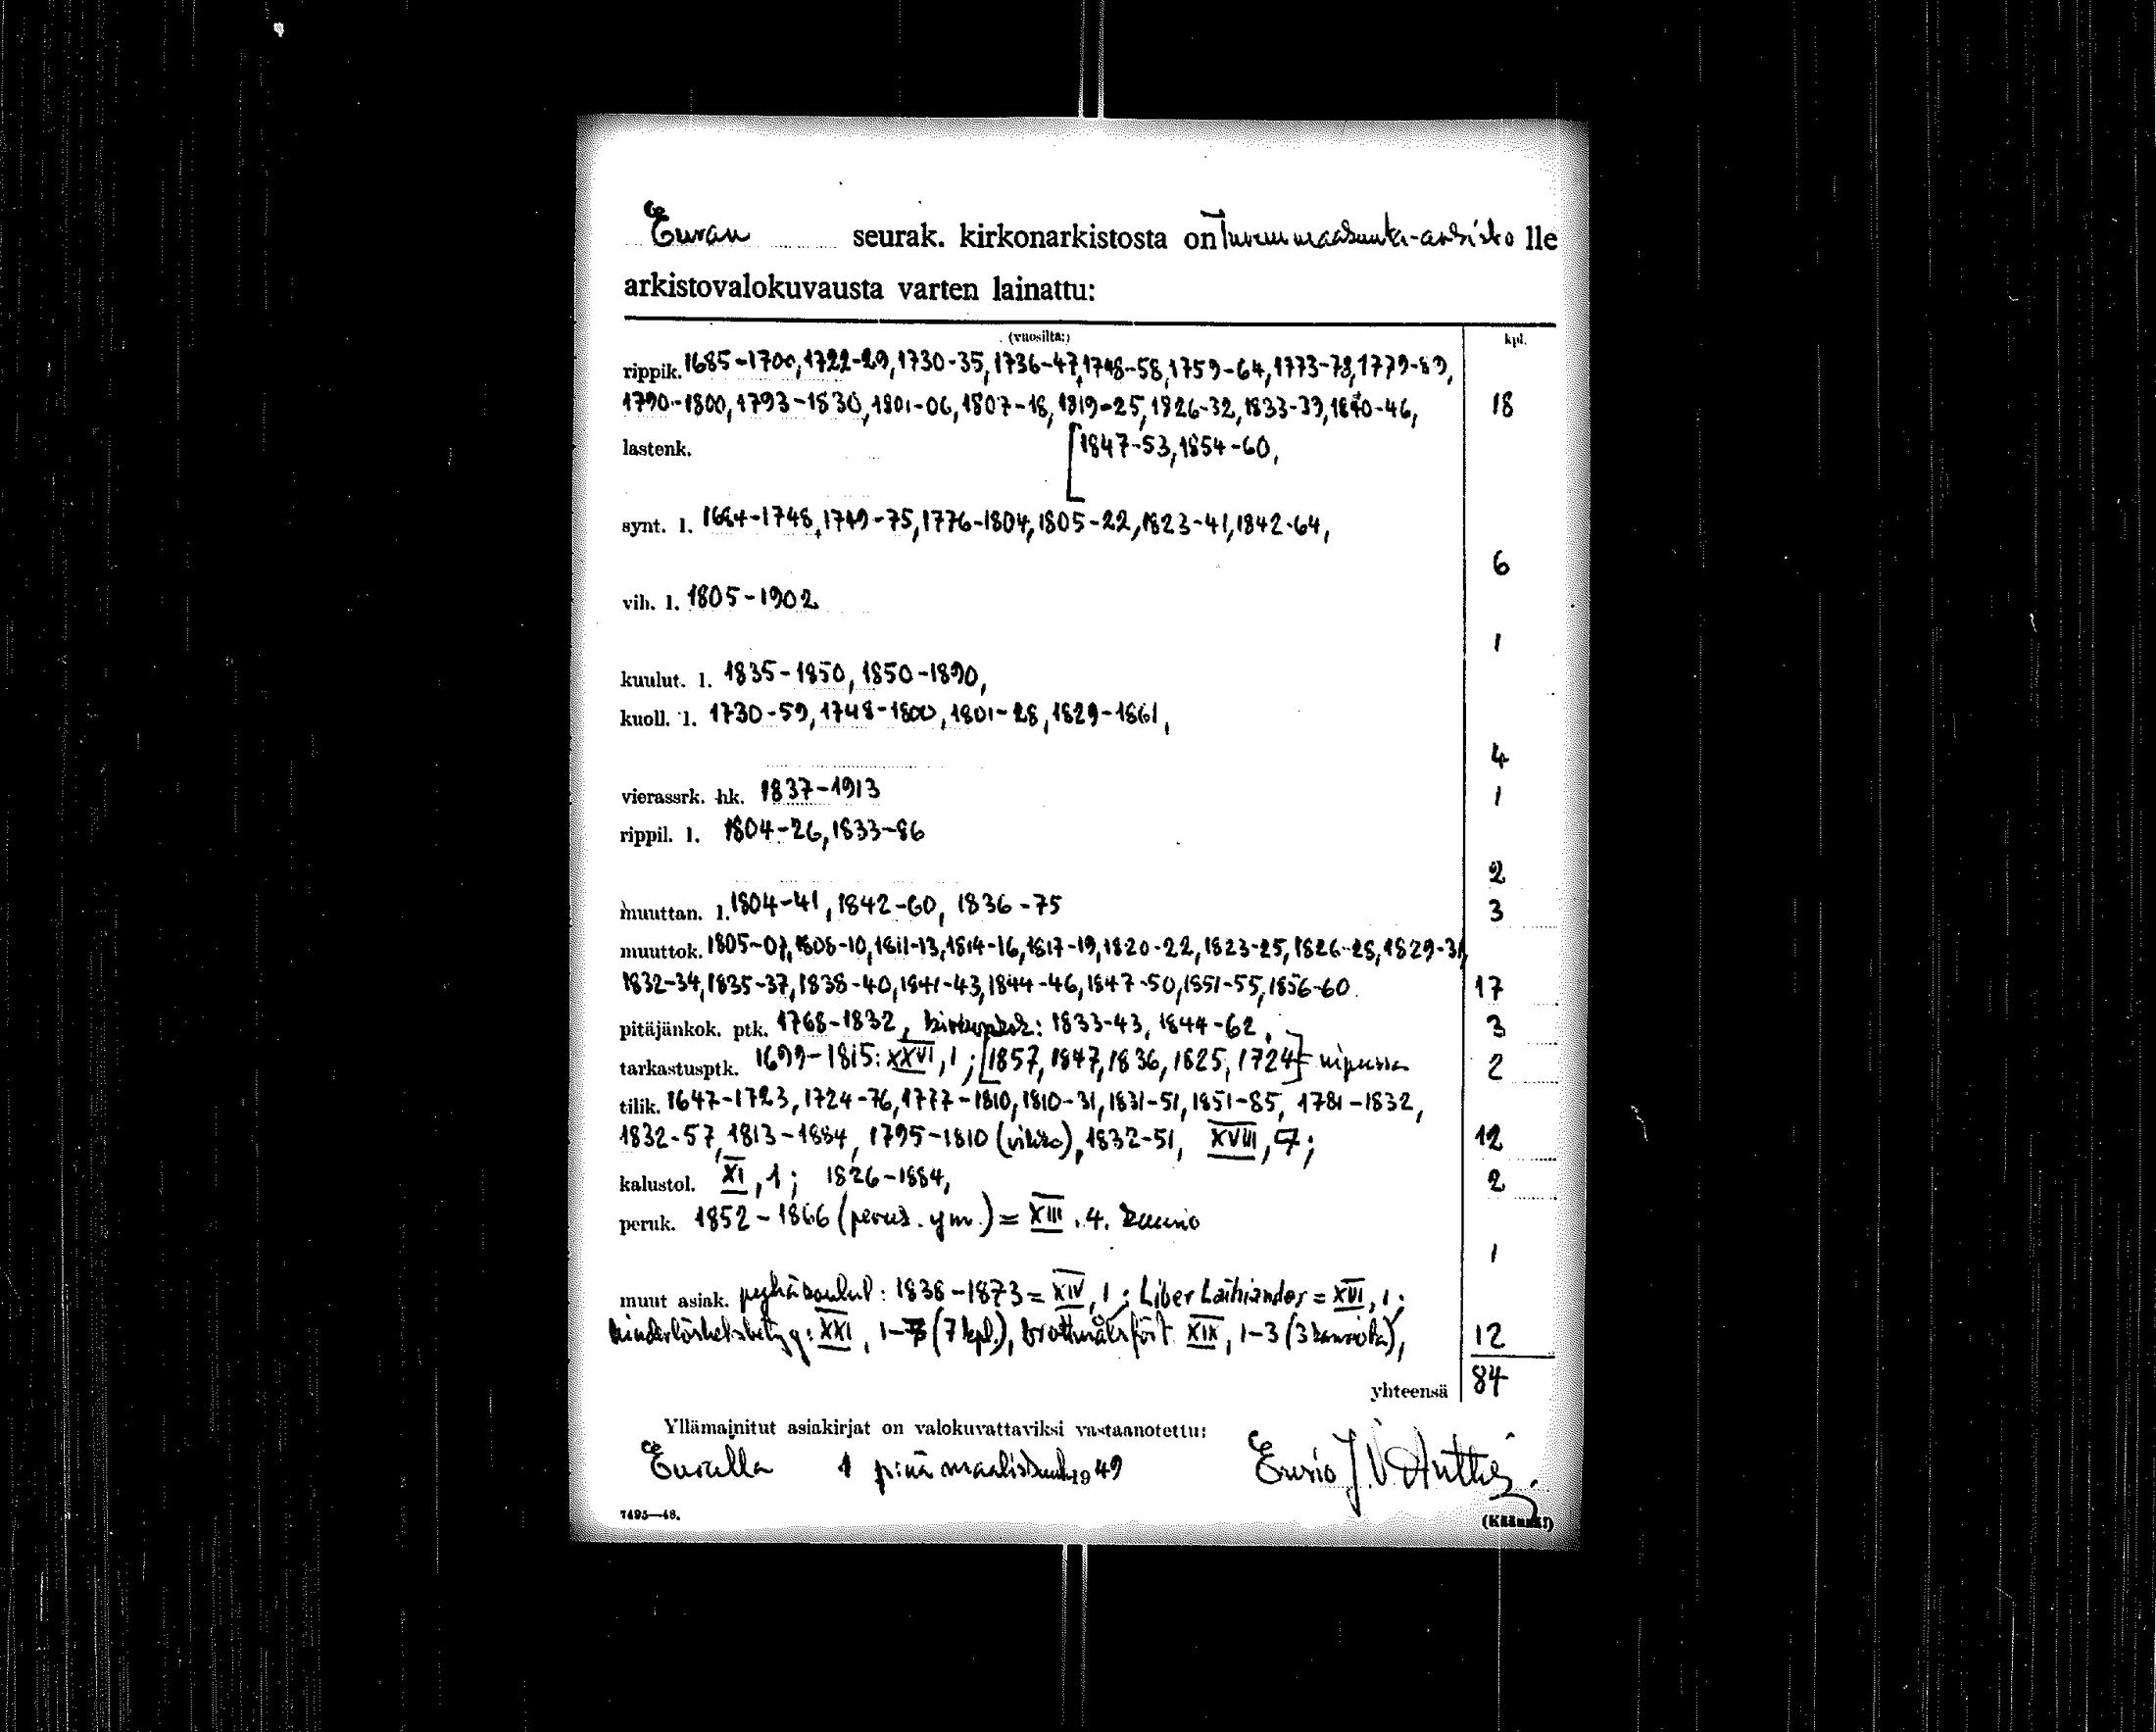 Euran seurak. kirkonarkistosta on Turun maakunta-arkisto lle
arkistovalokuvausta varten lainattu:
(vuosilta:) kpl.
rippik. 1685-1700, 1722-29, 1730-35, 1736-47, 1748-58, 1759-64, 1773-78, 1779-89,
1790-1800, 1793-1830, 1801-06, 1807-18, 1819-25, 1826-32, 1833-39, 1840-46, 18
lastenk. [1847-53, 1854-60,
synt. l. 1684-1748, 1749-75, 1776-1804, 1805-22, 1823-41, 1842-64,
6
vih. l. 1805-1902
1
kuulut. l. 1835-1850, 1850-1890,
kuoll. l. 1730-59, 1748-1800, 1801-28, 1829-1861,
4
vierassrk. hk. 1837-1913 1
rippil. l. 1804-26, 1833-86
2
muuttan. l. 1804-41, 1842-60, 1836-75 3
muuttok. 1805-07, 1808-10, 1811-13, 1814-16, 1817-19, 1820-22, 1823-25, 1826-28, 1829-31,
1832-34, 1835-37, 1838-40, 1841-43, 1844-46, 1847-50, 1851-55, 1856-60. 17
pitäjänkok. ptk. 1768-1832, 1833-43, 1844-62, 3
tarkastusptk. 1699-1815: XXVI, 1; [1857, 1847, 1836, 1825, 1724] nipussa 2
tilik. 1647-1723, 1724-76, 1777-1810, 1810-31, 1831-51, 1851-85, 1781-1832,
1832-57, 1813-1884, 1795-1810 (vihko), 1832-51, XVIII, 7; 12
kalustol. XI, 1; 1826-1884, 2
peruk. 1852-1866 (peruk. ym.) = XIII. 4.
1
muut asiak. pyhäkoulul: 1838-1873 = XIV, 1; Liber Laihiander = XVI, 1;
hinderlöshetsbetyg: XXI, 1-7 (7 kpl.), brottmålsfört. XIX, 1-3 (3 kansiota), 12
yhteensä 84
Yllämainitut asiakirjat on valokuvattaviksi vastaanotettu:
Euralla 1 p:nä maaliskuuta 1949
7495—48. (Käännä!)